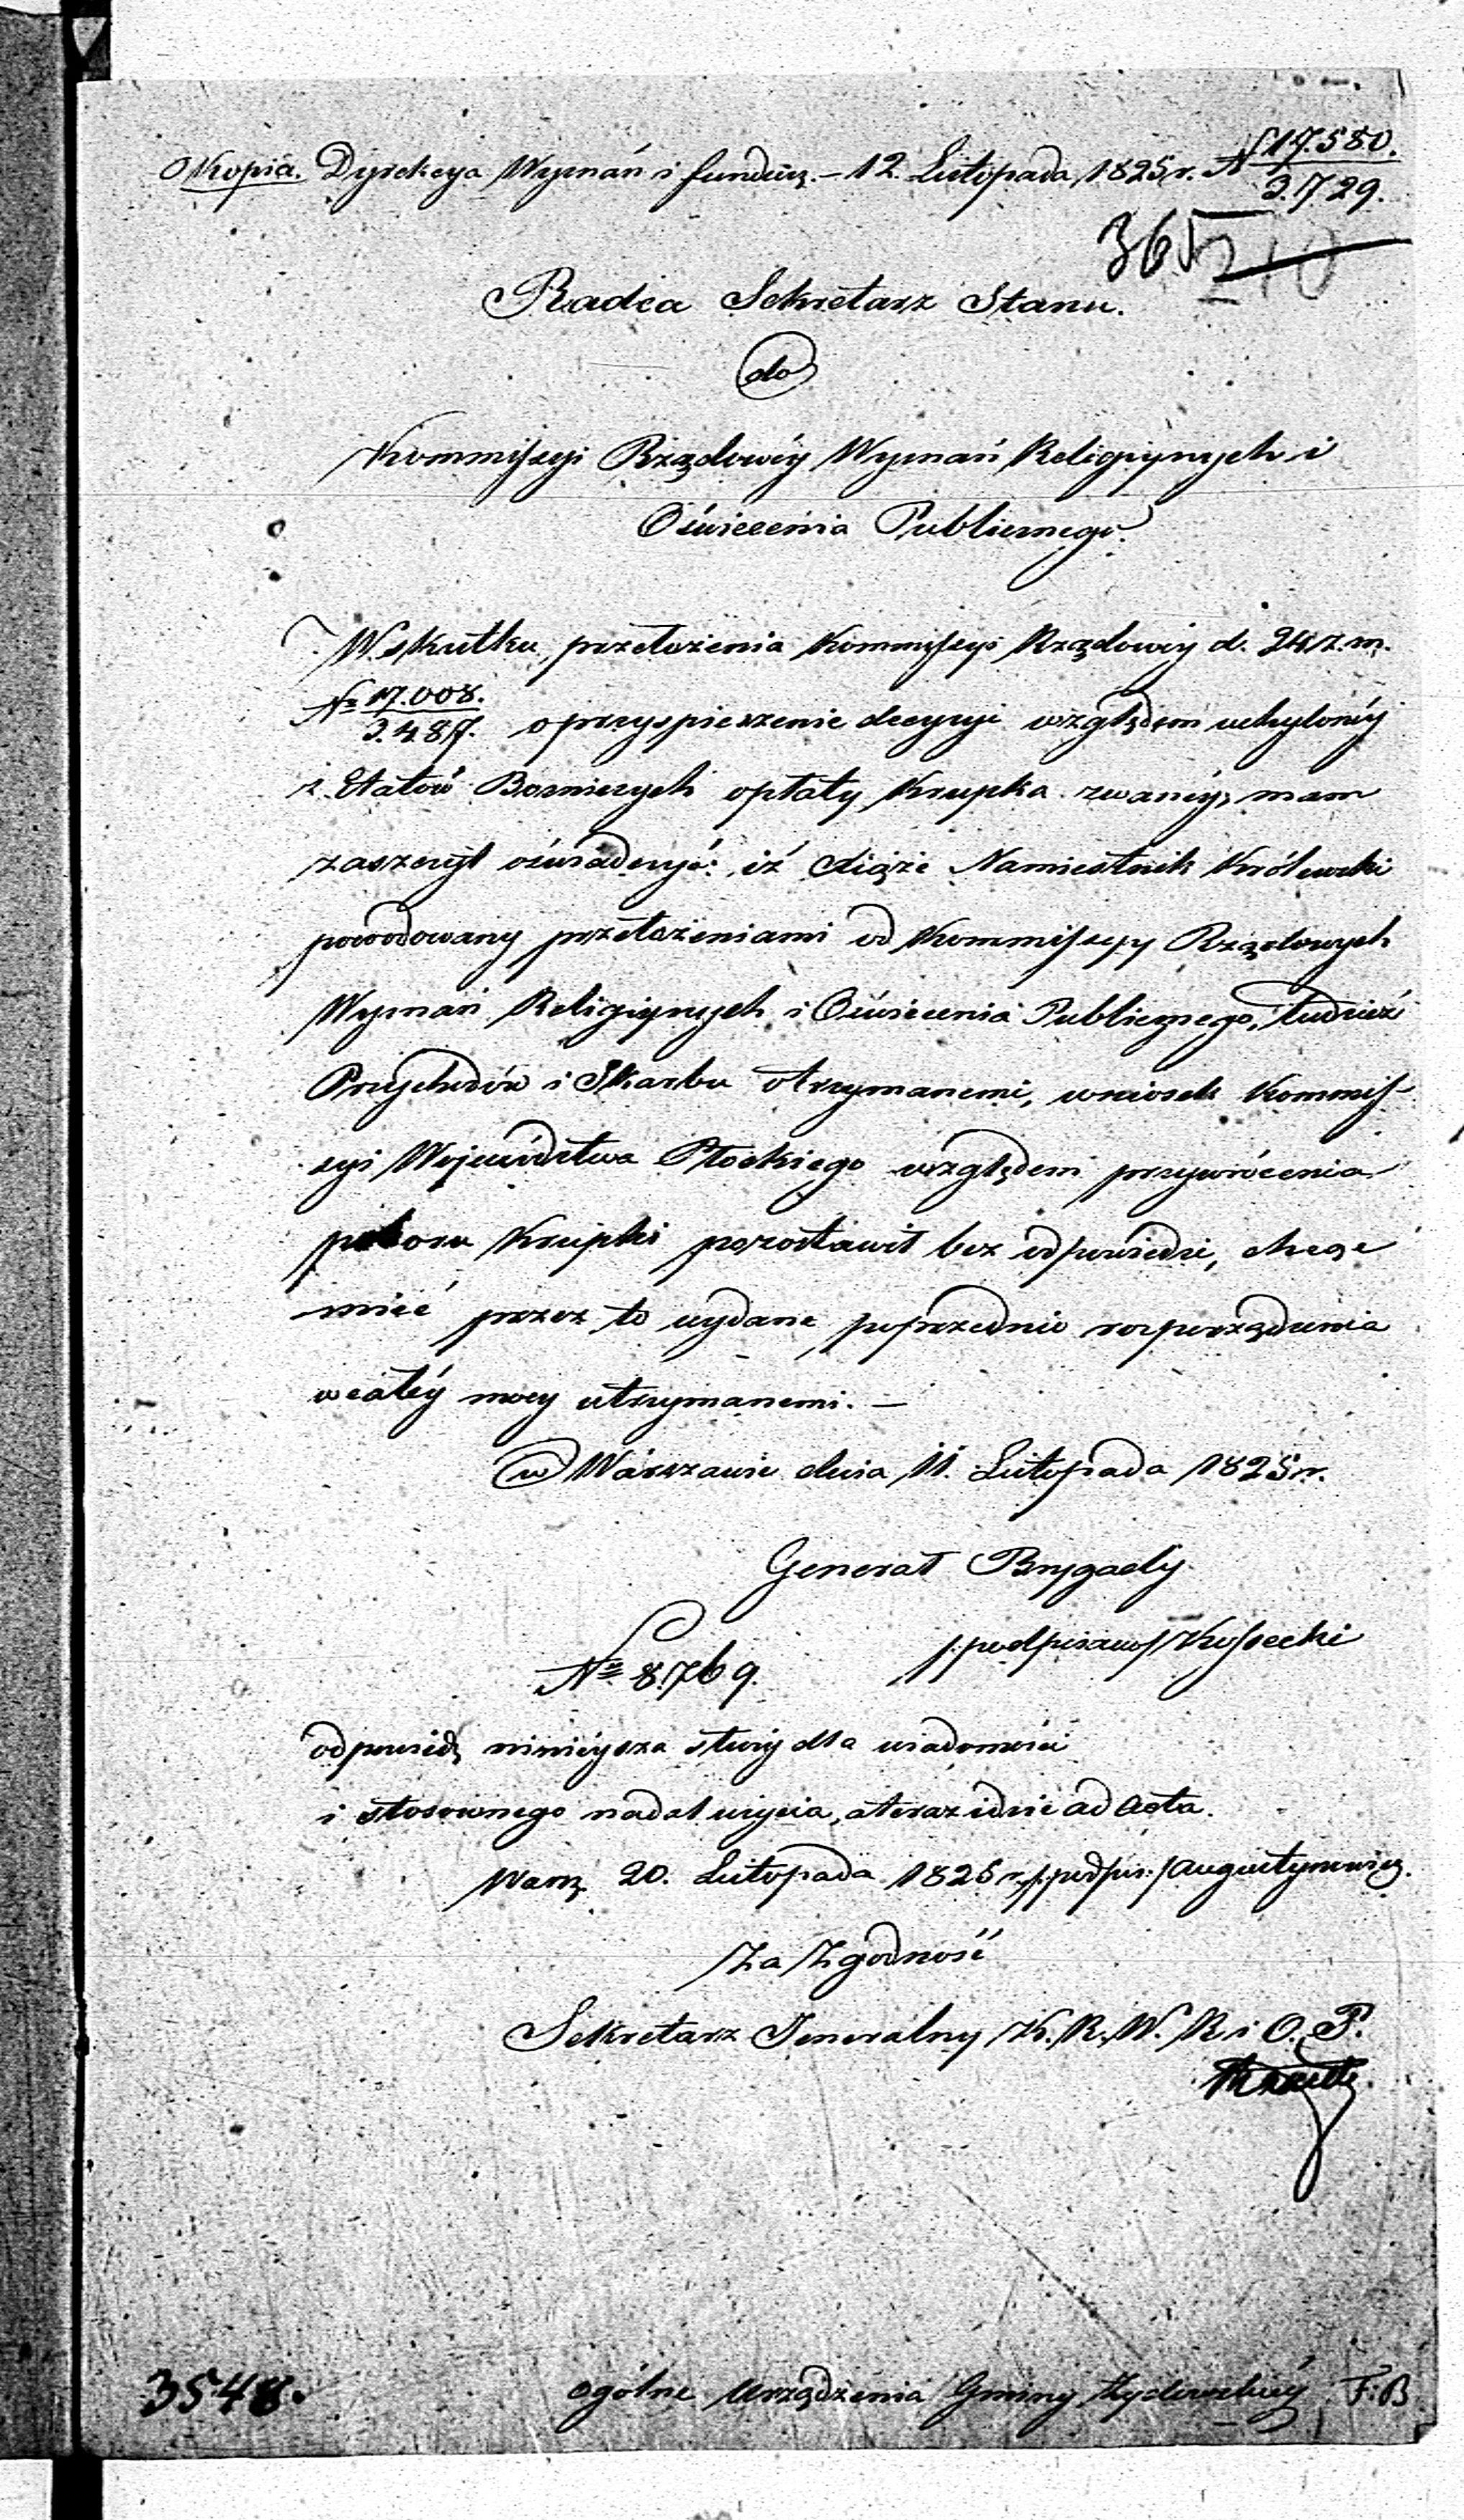 Kopia. Dyrekcya Wyznań i fundusz. – 12. Listopada 1825 r. N 17.580. / 3.729.
365 210
Radca Sekretarz Stanu.
do
Kommissyi Rządowéy Wyznań Religiynych i
Oświecenia Publicznego.
W skutku przełożenia Kommissyi Rządowéy d. 24 z. m.
Nº 17.008. / 3.487. o przyspieszenie decyzyi względem uchyloney
z Etatów Bożniczych opłaty Krupka zwanéy, mam
zaszczyt oświadczyć: iż Xiąże Namiestnik Królewski
powodowany przełożeniami od Kommissyy Rządowych
Wyznań Religiynych i Oświecenia Publicznego, tudzież
Przychodów i Skarbu otrzymanemi, wniosek Kommis-
syi Województwa Płockiego względem przywrócenia
poboru Krupki pozostawił bez odpowiedzi, chcąc
mieć przez to wydane poprzednio rozporządzenia
w całéy mocy utrzymanemi. —
w Warszawie dnia 11. Listopada 1825 r.
Generał Brygady
/:podpisano/ Kossecki
Nº 8.769.
odpowiedź ninieysza służy dla wiadomości
i stosownego nadal użycia, a teraz idzie ad Acta.
Warsz. 20. Listopada 1825 r. /:podpis:/ Augustynowicz.
Za Zgodność
Sekretarz Jeneralny K. R. W. R. i O. P.
3548.
ogólne Urządzenia Gminy Żydowskiéy F: B